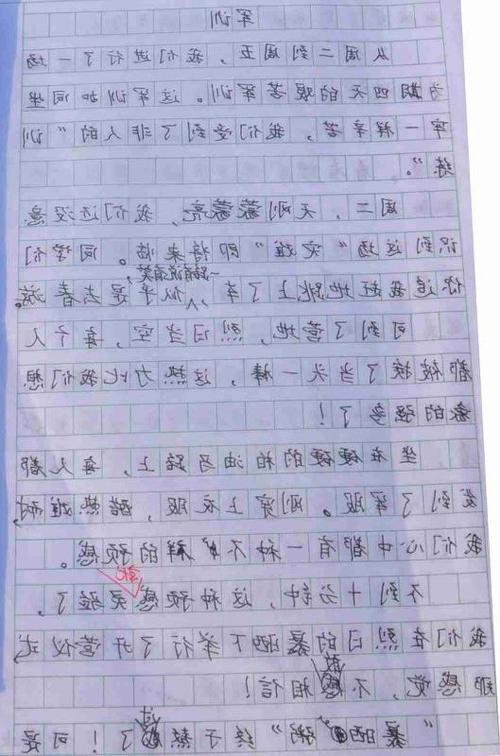 军训
从周二到周五，我们进行了一场
为期四天的艰苦军训。这军训如同坐
牢一样辛苦，我们受到了非人的“训
练”。
周二，天刚蒙蒙亮，我们还没意
识到这场“灾难”即将来临。同学们
一路有说有笑，
你追我赶地跳上了车，似乎是去春游。
可到了营地，烈日当空，每个人
都被了当头一棒，这热力比我们想
象的强多了！
坐在硬硬的柏油马路上，每人都
发到了军服。刚穿上衣服，酷热难耐，
我们心中都有一种不祥的预感。
不到十分钟，这种预感灵验了。
我们在烈日的暴晒下举行了开营仪式
那感觉，不相信！
“暴晒”终于熬过了！可是